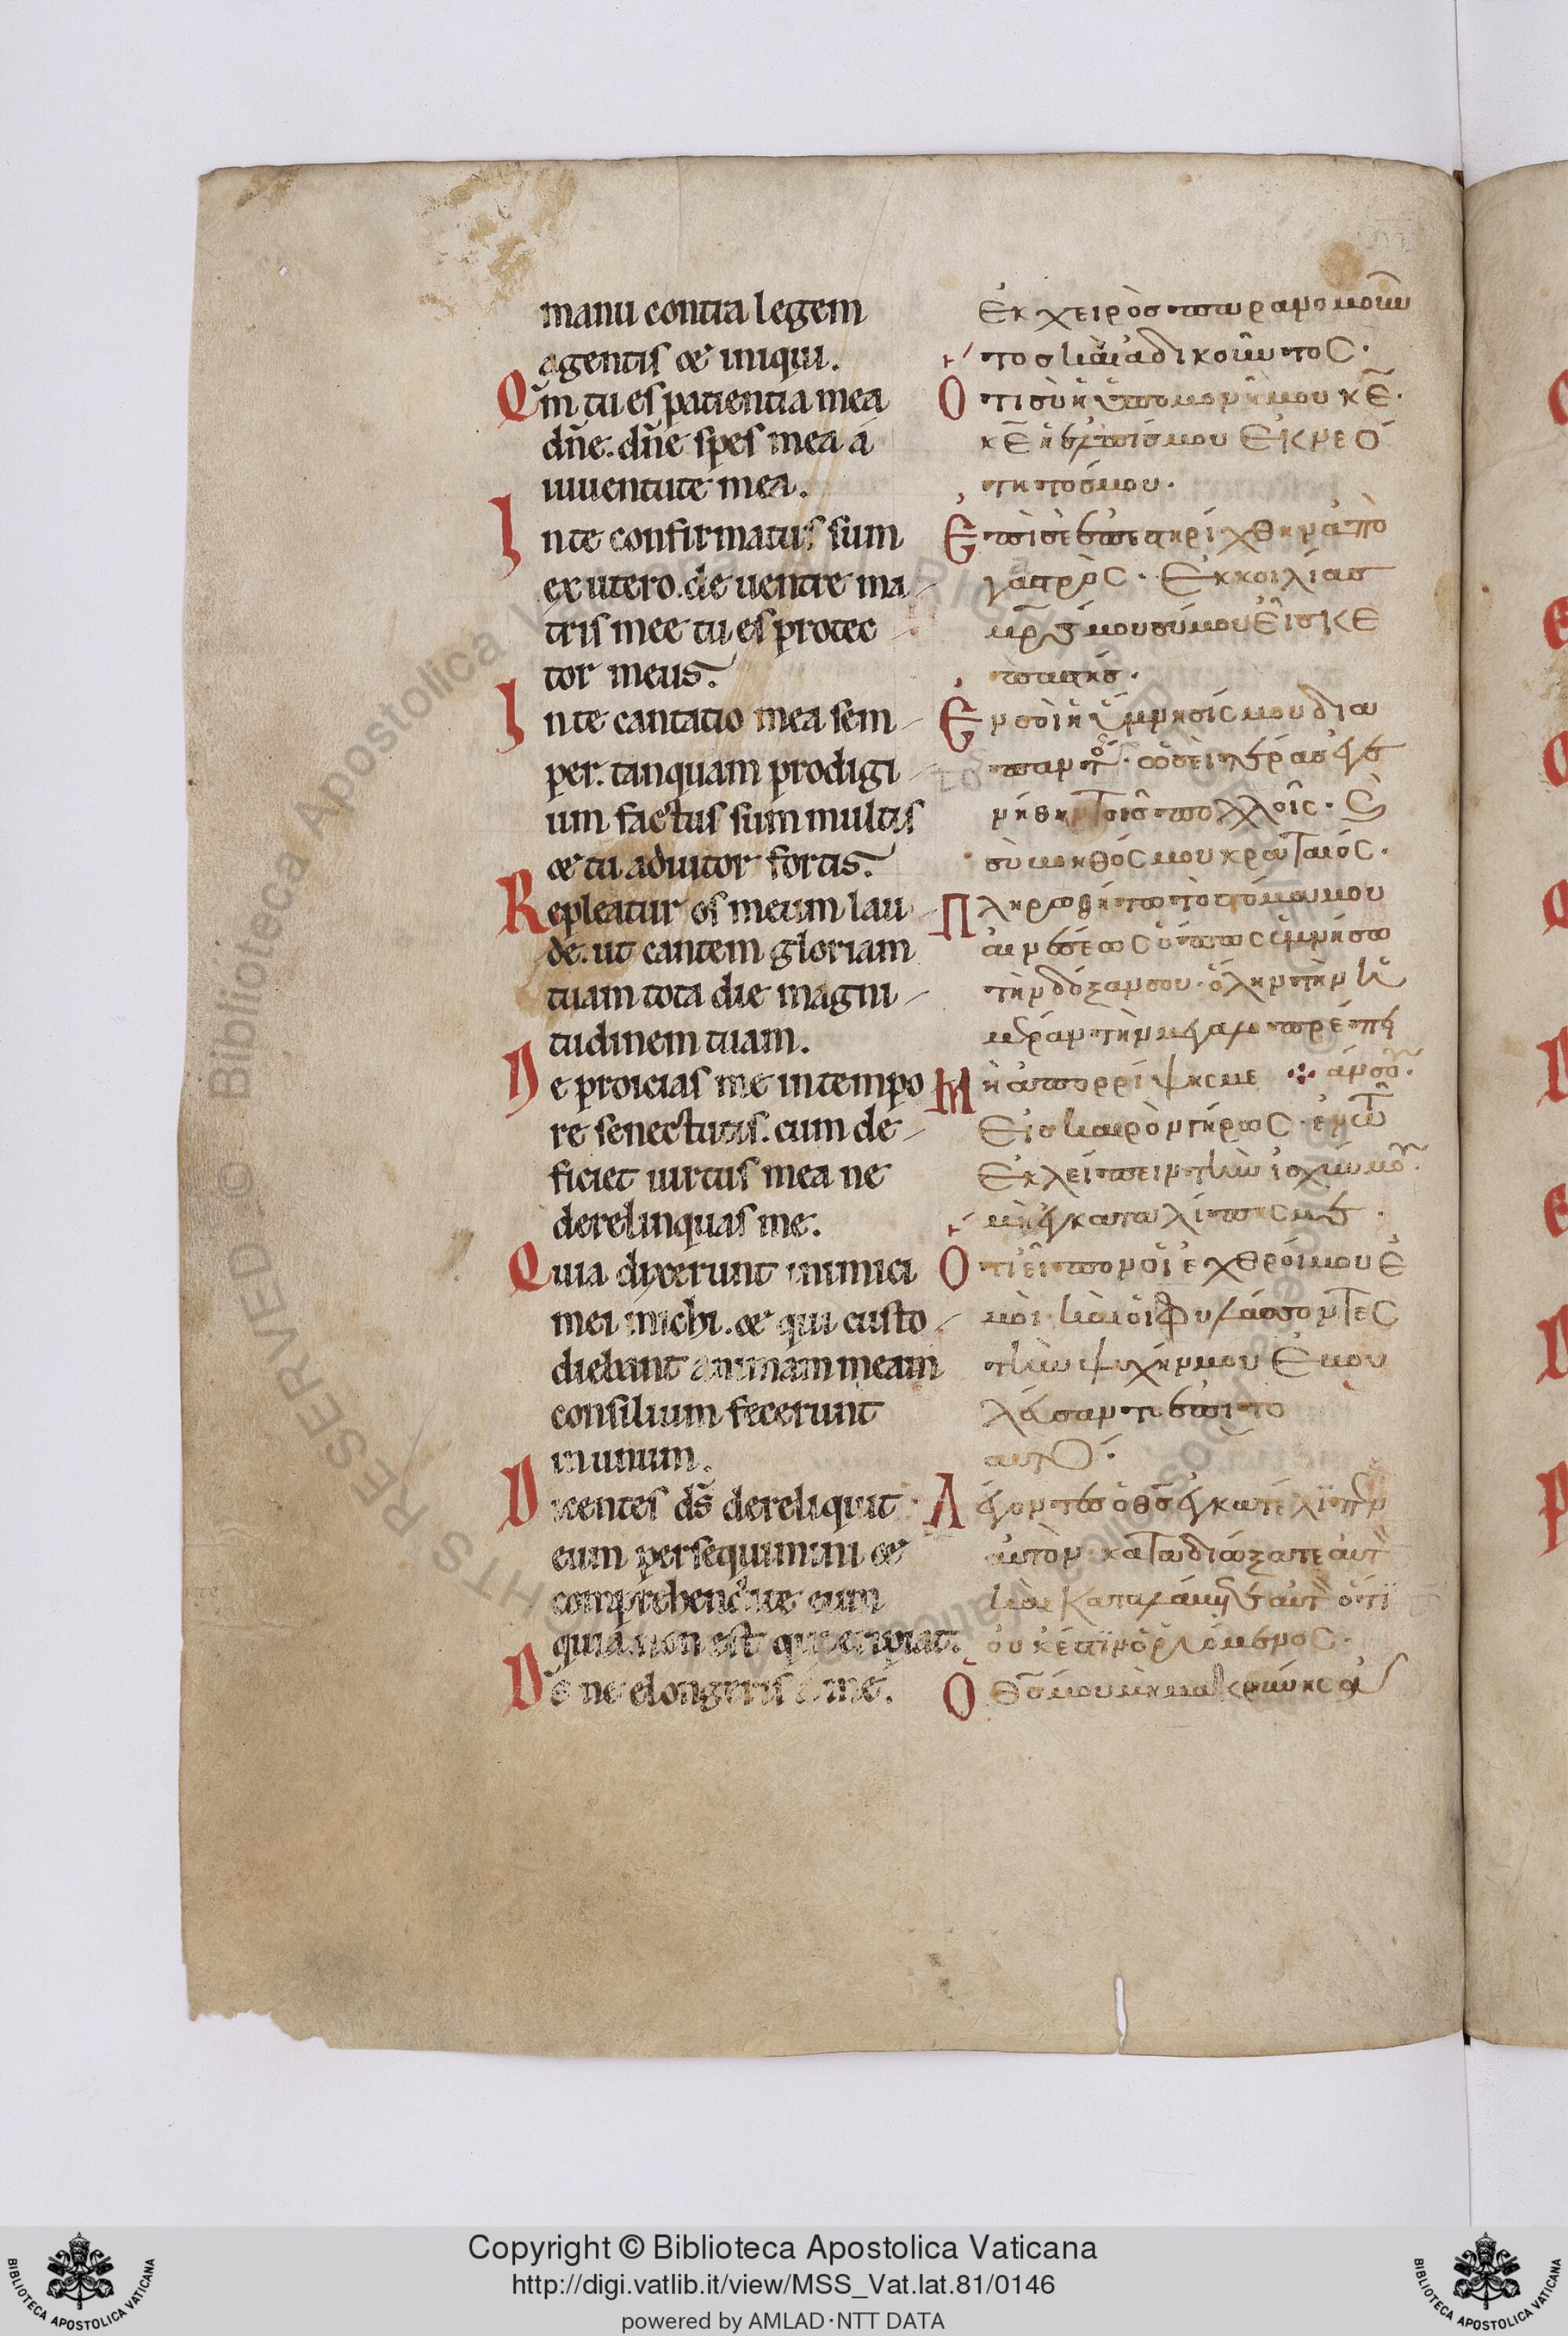 manu contra legem
agentis & iniqui.
Qm̄ tu es patientia mea
dn̄e. dn̄e spes mea á
iuuentute mea.
In te confirmatus sum
ex utero. de uentre ma-
tris mee tu es protec-
tor meus.
In te cantatio mea sem-
per. tanquam prodigi-
um factus sum multis
& tu adiutor fortis.
Repleatur os meum lau-
de. ut cantem gloriam
tuam tota die magni-
tudinem tuam.
Ne proicias me in tempo
re senectutis. cum de-
ficiet uirtus mea ne
derelinquas me.
Quia dixerunt inimici
mei michi. & qui custo-
diebant animam meam
consilium fecerunt
in unum.
Dicentes ds̄ dereliquit
eum persequimini &
comprehendite eum
quia non est qui eripiat.
Ds̄ ne elongeris á me.
ἐκ χειρὸσ παρανομοῦν
τοσ καὶ ἀδικοῦντοσ.
Ὅτι σὺ ἡ ὑπομονή μου κ̄ε̄.
κ̄ε̄ ἡ ἐλπίσ μου ἐκ νεό
τητόσ μου.
Ἐπὶ σὲ ἐπεστηρίχθην ἀπὸ
γαστρὸσ. ἐκ κοιλίασ
μρ̄σ μου σύ μου εἶ σκε
παστήσ.
Ἐν σοὶ ἡ ὕμνησίσ μου δια
παντό. ὡσεὶ τέρασ ἐγε
νήθην τοῖσ πολλοῖσ. ϗ̀
σὺ βοηθόσ μου κραταιόσ.
Πληρωθήτω τὸ στόμα μου
αἰνέσεωσ ὅπωσ ὑμνήσω
τὴν δόξαν σου. ὅλην τὴν ἡ
μέραν τὴν μεγαλοπρέπει
Μὴ ἀπορρίψησ με ⁘ άν σου.
εἰσ καιρὸν γήρωσ. ἐν τῶ
ἐκλείπειν τὴν ἰσχύν μου.
μὴ ἐγκαταλίπησ με.
Ὅτι εἶπον οἱ ἐχθροί μου ἐ
μοὶ καὶ οἱ φυλάσσοντεσ
τὴν ψυχήν μου ἐβου
λεύσαντο ἐπὶ τὸ
αυτό.
Λέγοντεσ ὁ θ̄σ̄ ἐγκατέλιπεν
αὐτὸν καταδιώξατε αὐτ
καὶ καταλάβετε αὐτ ὅτι
οὐκ ἔστιν ὁ ρυόμενοσ.
Ὁ θ̄σ̄ μου μὴ μακρύνησ ἀ